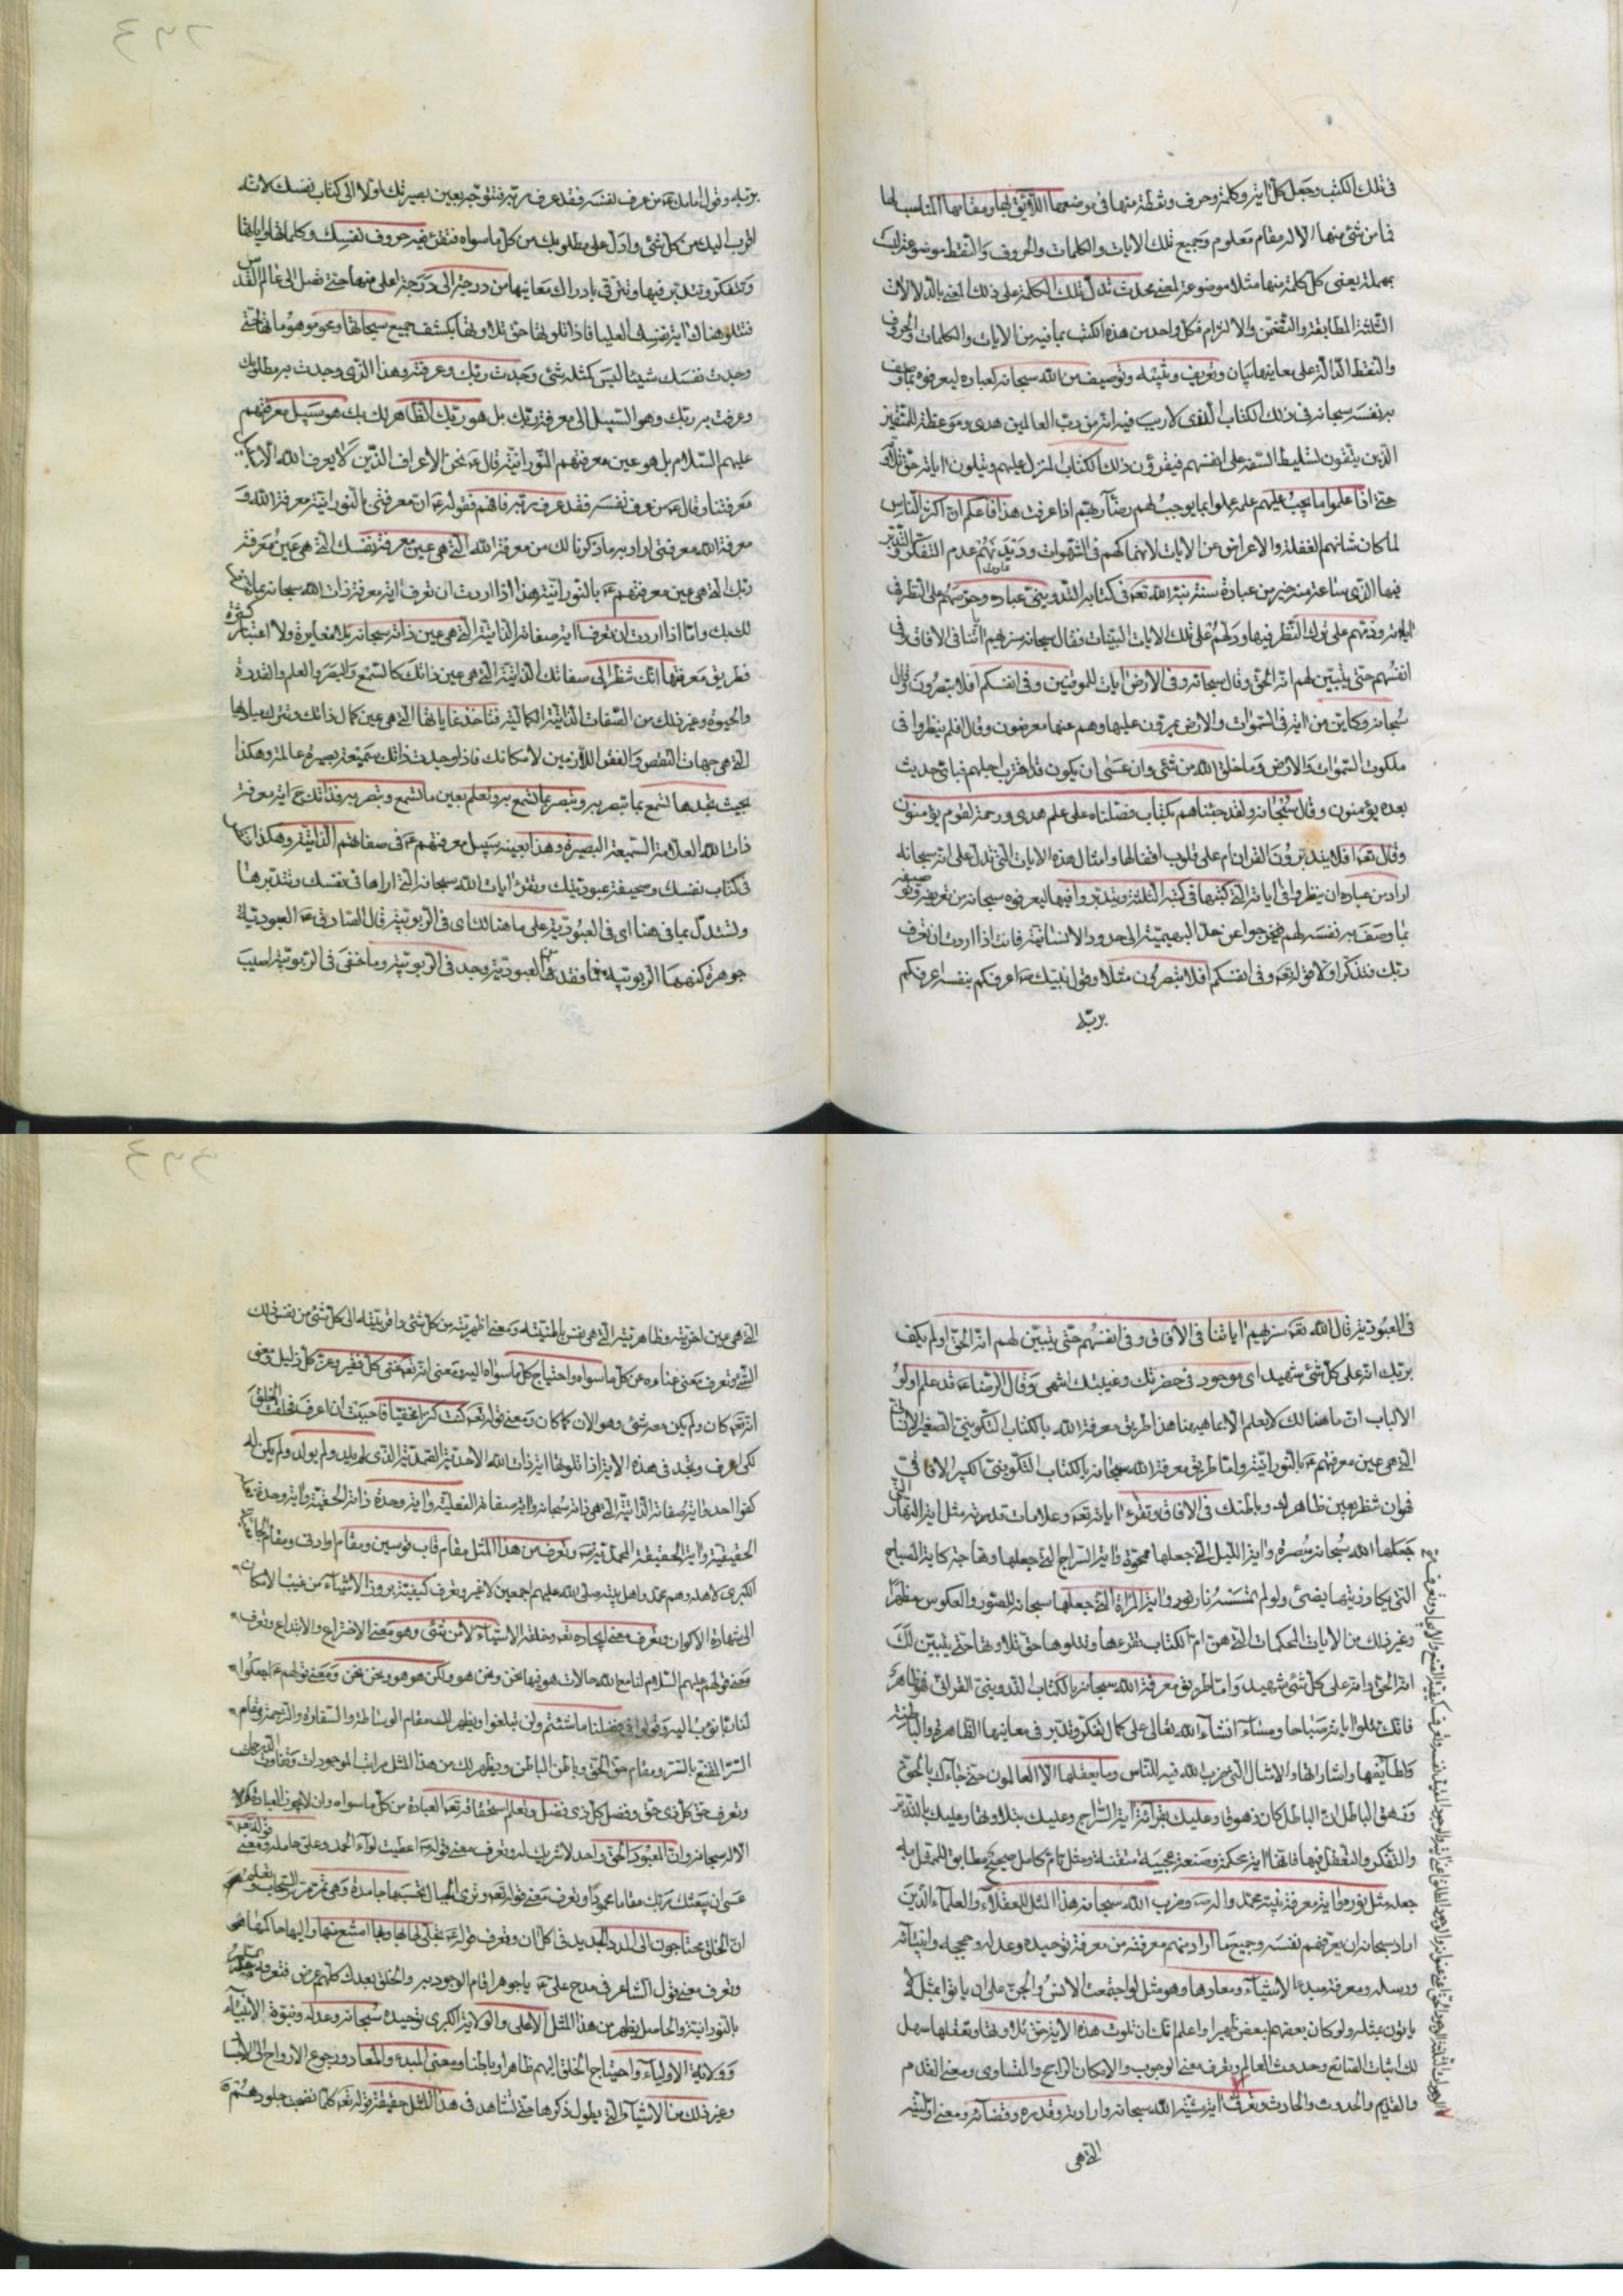 في تلك الكتب وجعل كل اية وكلمة وحرف ونقطة منها في موضعها اللايق لها ومقامها المناسب لها
فما من شئ منها الا له مقام معلوم وجميع تلك الايات والكلمات والحروف والنقط موضوعة ليست
بمهملة يعني كل كلمة منها مثلا موضوعة لمعني محدث تدل تلك الكلمة على ذلك المعني بالدلالات
الثلثة المطابقة والتضمن والالتزام فكل واحد من هذه الكتب بما فيه من الايات والكلمات والحروف
والنقط الدالة على معاينها بيان وتعريف وتوصيف من الله سبحانه لعباده ليعرفوه بما وصف
به نفسه سبحانه في ذلك الكتاب الذي لا ريب فيه انه من رب العالمين هدى وموعظة للمتقين
الذين يتقون تسليط السفه على انفسهم فيقرؤن ذلك الكتاب المنزل عليهم ويتلون اياته حق تلاوته
حتى اذا علموا ما يجب عليهم علمه عملوا بما يوجب لهم رضا ربهم اذا عرفت هذا فاعلم ان اكثر الناس
لما كان شانهم الغفلة والاعراض عن الايات لانهماكهم في الشهوات عدم التفكر والتدبر
فيها الذي ساعة منه خير من عبادة سنة نبه الله تعه في كتابه التدويني عباده وحرصهم على النظر في
اياته وذمهم على ترك النظر فيها ودلهم على تلك الايات البينات فقال سبحانه سنريهم اياتنا في الافاق وفي
انفسهم حتى يتبين لهم انه الحق وقال سبحانه وفي الارض ايات للموقنين وفي انفسكم افلا تبصرون وقال
سبحانه وكاين من اية في السموات والارض يمرون عليها وهم عنها معرضون وقال اولم ينظروا في
ملكوت السموات والارض وما خلق الله من شئ وان عسى ان يكون قد اقترب اجلهم فباي حديث
بعده يؤمنون وقال سبحانه ولقد جئناهم بكتاب فصلناه على علم هدى ورحمة لقوم يؤمنون
وقال تعه افلا يتدبرون القران ام على قلوب اقفالها وامثال هذه الايات التي تدل على انه سبحانه
اراد من عباده ان ينظروا في اياته التي كتبها في كتبه الثلثة ويتدبروا فيها ليعرفوه سبحانه من تعريفه
بما وصف به نفسه لهم فيخرجوا عن حد البهيمية الى حدود الانسانية فانت اذا اردت ان تعرف
ربك فتذكر اولا قوله تعه وفي انفسكم افلا تبصرون مثلا وقول نبيك ص اعرفكم بنفسه اعرفكم
بربه
بربه وقول امامك ع من عرف نفسه فقد عرف ربه فتتوجه بعين بصيرتك اولا الى كتاب نفسك لانه
اقرب اليك من كل شئ وادل على مطلوبك من كل ما سواه فتقرئ فيه حروف نفسك وكلماتها واياتها
وتتفكر وتتدبر فيها وتترقى بادراك معانيها من درجة الى درجة اعلى منها حتى تصل الى عالم القدس
فتتلو هناك اية نفسك العليا فاذا تلوتها حق تلاوتها بكشف جميع سبحاتها ومحو موهوماتها حتى
وجدت نفسك شيئا ليس كمثله شئ وجدت ربك وعرفته وهذا الذي وجدت به مطلوبك
وعرفت به ربك وهو السبيل الى معرفة ربك بل هو ربك الظاهر لك بك هو سبيل معرفتهم
عليهم السلام بل هو عين معرفتهم النورانية قال ع نحن الاعراف الذين لا يعرف الله الا بسبيل
معرفتنا وقال ع من عرف نفسه فقد عرف ربه فافهم فقوله ع ان معرفتي بالنورانية معرفة الله و
معرفة الله معرفتي اراد به ما ذكرنا لك من معرفة الله التي هي عين معرفة نفسك التي هي عين معرفة
ربك التي هي عين معرفتهم ع بالنورانية هذا اذا اردت ان تعرف اية معرفة ذات الله سبحانه
لك بك واما اذا اردت ان تعرف اية صفاته الذاتية التي هي عين ذاته سبحانه بلا مغايرة ولا اعتبار كثرة
فطريق معرفتها انك تنظر الى صفاتك الذاتية التي هي عين ذاتك كالسمع والبصر والعلم والقدرة
والحيوة وغير ذلك من الصفات الذاتية الكمالية فتاخذ غاياتها التي هي عين كمال ذاتك وتترك مباديها
التي هي جهات النقص والفقر اللازمين لامكانك فاذا وجدت ذاتك سميعة بصيرة عالمة وهكذا
بحيث تجدها تسمع بما تبصر به وتبصر بما تسمع به وتعلم بعين ما تسمع وتبصر به فذاتك ح اية معرفة
ذات الله العلامة السميعة البصيرة وهذا بعينه سبيل معرفتهم ع في صفاتهم الذاتية وهكذا
في كتاب نفسك وصحيفة عبوديتك وتقرئ ايات الله سبحانه التي اراها في نفسك وتتدبرها
وتستدل بما في هنا اي في العبودية على ما هنالك اي في الربوبية قال الصادق ع العبودية
جوهرة كنهها الربوبية فما فقد في العبودية وجد في الربوبية وما خفي في الربوبية اصيب
في العبودية قال الله تعه سنريهم اياتنا في الافاق وفي انفسهم حتى يتبين لهم انه الحق او لم يكف
بربك انه على كل شئ شهيد اي موجود في حضرتك وغيبتك انتهى وقال الرضا ع قد علم اولو
الالباب ان ما هنالك لا يعلم الا بما هيهنا هذا طريق معرفة الله بالكتاب التكويني الصغير الانساني
التي هي عين معرفتهم ع بالنورانية واما طريق معرفة الله سبحانه بالكتاب التكويني الكبير الافاقي
فهو ان تنظر بعين ظاهرك وباطنك في الافاق وتقرء اياته تعه وعلامات قدرته مثل اية النهار التي
جعلها الله سبحانه مبصرة واية الليل التي جعلها ممحوة واية السراج التي جعلها وهاجة كاية المصباح
التي يكاد زيتها يضئ ولو لم تمسسه نار نور واية المراة التي جعلها سبحانه للصور والعكوس مظهرا
وغير ذلك من الايات المحكمات التي هن ام الكتاب تقرءها وتتلوها حق تلاوتها حتى يتبين لك
انه الحق وانه على كل شئ شهيد واما طريق معرفة الله سبحانه بالكتاب التدويني القراني فهو ظاهر
فانك تتلوا اياته صباحا ومساء انشاء الله تعالى على كمال تفكر وتدبر في معانيها الظاهرة والباطنة
ولطايفها واشاراتها والامثال التي ضرب الله فيه للناس وما يعقلها الا العالمون حتى جاءك الحق
وزهق الباطل ان الباطل كان زهوقا وعليك بقرائة اية السراج وعليك بتلاوتها وعليك بالتدبر
والتفكر والتعقل فيها فانها اية محكمة وصنعة عجيبة متقنة ومثل تام كامل صحيح مطابق للممثل به
جعله مثل نوره واية معرفة نبيه محمد واله ص وضرب الله سبحانه هذا المثل للعقلاء والعلماء الذين
اراد سبحانه ان يعرفهم نفسه وجميع ما اراد منهم معرفته من معرفة توحيده وعدله وحججه وانبيائه
ورسله ومعرفة مبدء الاشياء ومعادها وهو مثل لو اجتمعت الانس والجن على ان ياتوا بمثله لا
ياتون بمثله ولو كان بعضهم لبعض ظهيرا واعلم انك ان تلوت هذه الاية حق تلاوتها وتعقلها سهل
لك اثبات الصانع وحدوث العالم وتعرف معني الوجوب والامكان الراجح والمتساوي ومعني القدم
والقديم والحدوث والحادث وتعرف اية مشية الله سبحانه وارادته وقدره وقضائه ومعني اوليته
التي هي
التي هي عين اخريته وظاهريته التي هي نفس باطنيته ومعني اظهريته من كل شئ واقربيته الى كل شئ من نفس ذلك
الشئ وتعرف معني غناءه عن كل ما سواه واحتياج كل ما سواه اليه ومعني انه تعه غني كل فقير وعز كل ذليل ومعني
انه تعه كان ولم يكن معه شئ وهو الان كما كان ومعني قوله تعه كنت كنزا مخفيا فاحببت ان اعرف فخلقت الخلق
لكي اعرف وتجد في هذه الاية اذا تلوتها اية ذات الله الاحدية الصمدية الذي لم يلد ولم يولد ولم يكن له
كفوا احد واية صفاته الذاتية التي هي ذاته سبحانه واية صفاته الفعلية واية وحدة ذاته الحقية واية وحدة
الحقيقية واية الحقيقة المحمدية ص وتعرف من هذا المثل مقام قاب قوسين ومقام او ادنى ومقام
الكبرى لاهله وهم محمد واهل بيته صلى الله عليهم اجمعين لا غير وتعرف كيفية بروز الاشياء من غيب الامكان
الى شهادة الاكوان وتعرف معني ايجاده تعه وخلقه الاشياء لا من شئ وهو معني الاختراع والابتداع وتعرف
معني قولهم عليهم السلام لنا مع الله حالات هو فيها نحن ونحن هو ولكن هو هو ونحن نحن ومعني قولهم ع اجعلوا
لنا ربا نؤب اليه وقولوا في فضلنا ما شئتم ولن تبلغوا ويظهر لك مقام الوساطة والسفارة والترجمة ومقام
السر المقنع بالسر ومقام حق الحق وباطن الباطن ويظهر لك من هذا المثل مراتب الموجودات وتفاوت الدرجات
وتعرف حق كل ذي حق وفضل كل ذي فضل وتعلم استحقاقه تعه العبادة من كل ما سواه وان لا يجوز العبادة
الا له سبحانه وان المعبود بالحق واحد لا شريك له وتعرف معني قوله ص اعطيت لواء الحمد وعلي حامله ومعني قوله تعه
عسى ان يبعثك ربك مقاما محمودا وتعرف معني قوله تعه وترى الجبال تحسبها جامدة وهي تمر مر السحاب
ان الخلق محتاجون الى المدد الجديد في كل ان وتعرف قوله ع تجلى لها بها وبها امتنع منها واليها حاكمها
وتعرف معني قول الشاعر في مدح علي ع يا جوهرا قام الوجود به والخلق بعدك كلهم عرض فتعرفه
بالنورانية والحاصل يظهر من هذا المثل الاعلى والولاية الكبرى توحيده سبحانه وعدله ونبوة الانبياء
وولاية الاولياء واحتياج الخلق اليهم ظاهرا وباطنا ومعني المبدء والمعاد ورجوع الارواح الى الاجساد
وغير ذلك من الاشياء التي يطول ذكرها حتى تشاهد في هذا المثل حقيقة قوله تعه كلما نضجت جلودهم